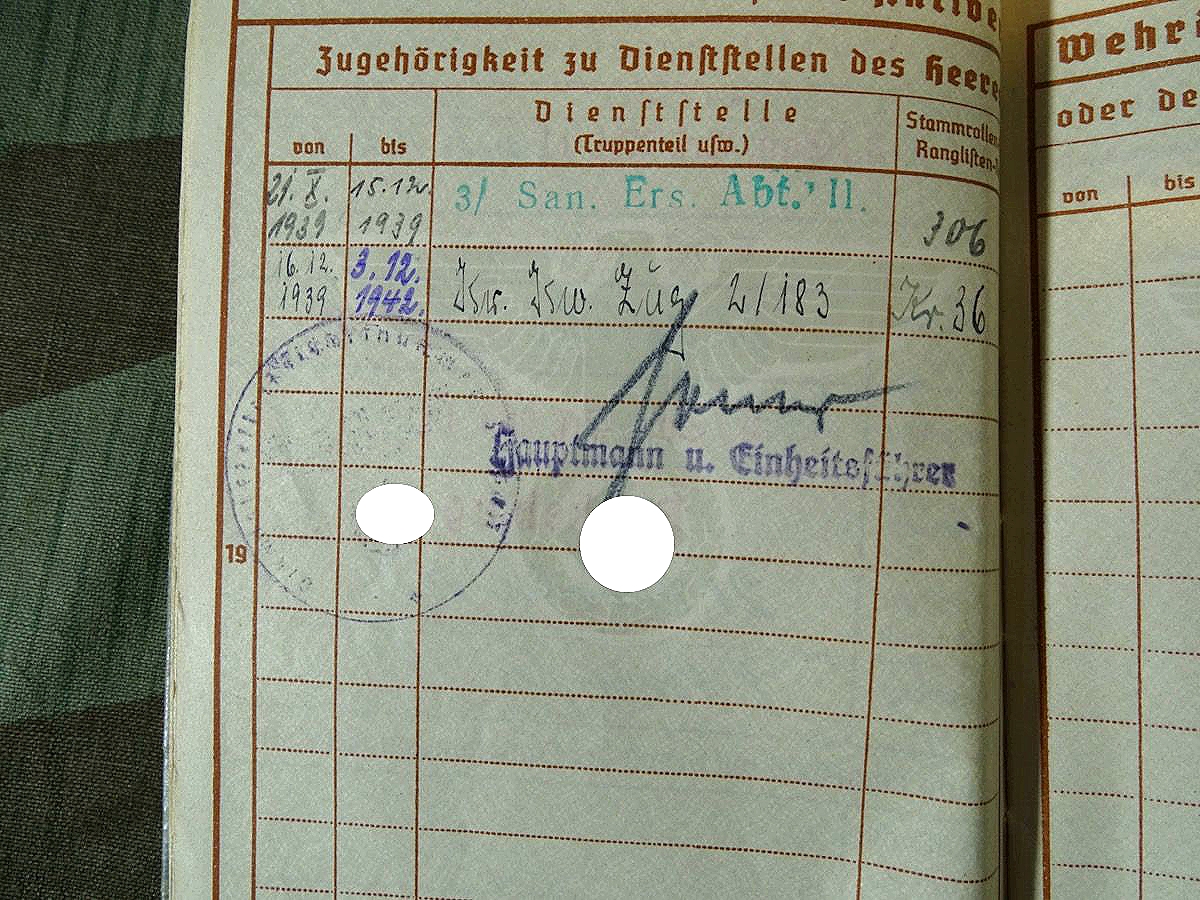 Zugehörigkeit zu Dienſtſtellen des Heere
Dienſtſtelle
(Truppenteil uſw.)
Stammrollen
Ranglisten-
von bis
21. X. 1939
15.12. 1939
3/ San. Ers. Abt. 11.
306
16.12. 1939
3.12. 1942.
Zug 2/183
Kr. 36
Hauptmann u. Einheitsführer
19
Wehr
oder de
von bis